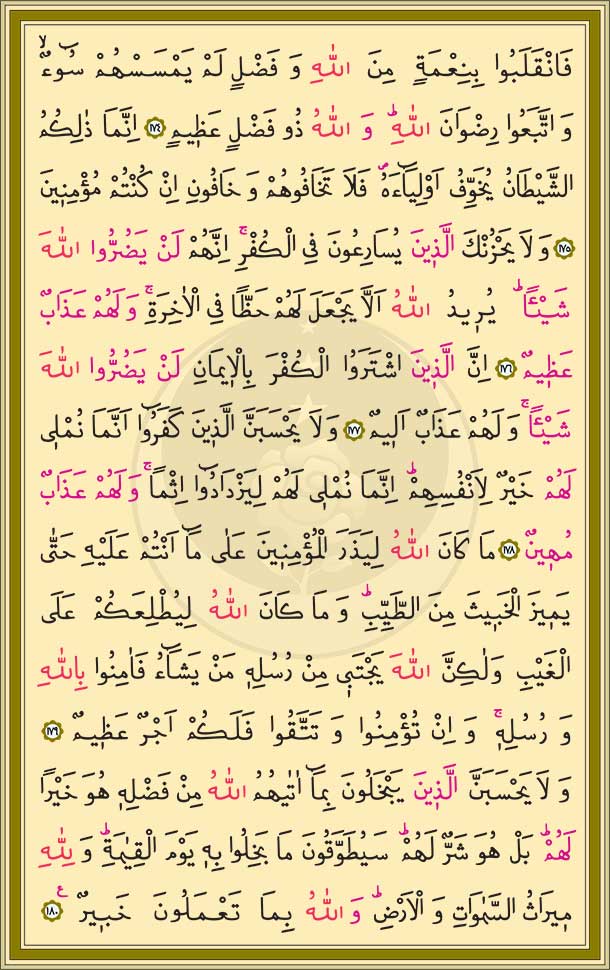 فَانْقَلَبُوا بِنِعْمَةٍ مِنَ اللّٰهِ وَ فَضْلٍ لَمْ يَمْسَسْهُمْ سُٓوءٌۙ
وَ اتَّبَعُوا رِضْوَانَ اللّٰهِۜ وَ اللّٰهُ ذُو فَضْلٍ عَظ۪يمٍ ﴿١٧٤﴾ اِنَّمَا ذٰلِكُمُ
الشَّيْطَانُ يُخَوِّفُ اَوْلِيَٓاءَهُۖ فَلَا تَخَافُوهُمْ وَ خَافُونِ اِنْ كُنْتُمْ مُؤْمِن۪ينَ
﴿١٧٥﴾ وَ لَا يَحْزُنْكَ الَّذ۪ينَ يُسَارِعُونَ فِي الْكُفْرِۚ اِنَّهُمْ لَنْ يَضُرُّوا اللّٰهَ
شَيْـًٔاۜ يُر۪يدُ اللّٰهُ اَلَّا يَجْعَلَ لَهُمْ حَظًّا فِي الْاٰخِرَةِۚ وَ لَهُمْ عَذَابٌ
عَظ۪يمٌ ﴿١٧٦﴾ اِنَّ الَّذ۪ينَ اشْتَرَوُا الْكُفْرَ بِالْا۪يمَانِ لَنْ يَضُرُّوا اللّٰهَ
شَيْـًٔاۚ وَ لَهُمْ عَذَابٌ اَل۪يمٌ ﴿١٧٧﴾ وَ لَا يَحْسَبَنَّ الَّذ۪ينَ كَفَرُٓوا اَنَّمَا نُمْل۪ي
لَهُمْ خَيْرٌ لِاَنْفُسِهِمْۜ اِنَّمَا نُمْل۪ي لَهُمْ لِيَزْدَادُٓوا اِثْمًاۚ وَ لَهُمْ عَذَابٌ
مُه۪ينٌ ﴿١٧٨﴾ مَا كَانَ اللّٰهُ لِيَذَرَ الْمُؤْمِن۪ينَ عَلٰى مَٓا اَنْتُمْ عَلَيْهِ حَتّٰى
يَم۪يزَ الْخَب۪يثَ مِنَ الطَّيِّبِۜ وَ مَا كَانَ اللّٰهُ لِيُطْلِعَكُمْ عَلَى
الْغَيْبِ وَلٰكِنَّ اللّٰهَ يَجْتَب۪ي مِنْ رُسُلِه۪ مَنْ يَشَٓاءُ فَاٰمِنُوا بِاللّٰهِ
وَ رُسُلِه۪ۚ وَ اِنْ تُؤْمِنُوا وَ تَتَّقُوا فَلَكُمْ اَجْرٌ عَظ۪يمٌ ﴿١٧٩﴾
وَ لَا يَحْسَبَنَّ الَّذ۪ينَ يَبْخَلُونَ بِمَٓا اٰتٰيهُمُ اللّٰهُ مِنْ فَضْلِه۪ هُوَ خَيْرًا
لَهُمْۜ بَلْ هُوَ شَرٌّ لَهُمْۜ سَيُطَوَّقُونَ مَا بَخِلُوا بِه۪ يَوْمَ الْقِيٰمَةِۜ وَ لِلّٰهِ
م۪يرَاثُ السَّمٰوَاتِ وَ الْاَرْضِۜ وَ اللّٰهُ بِمَا تَعْمَلُونَ خَب۪يرٌ ﴿١٨٠﴾ ع